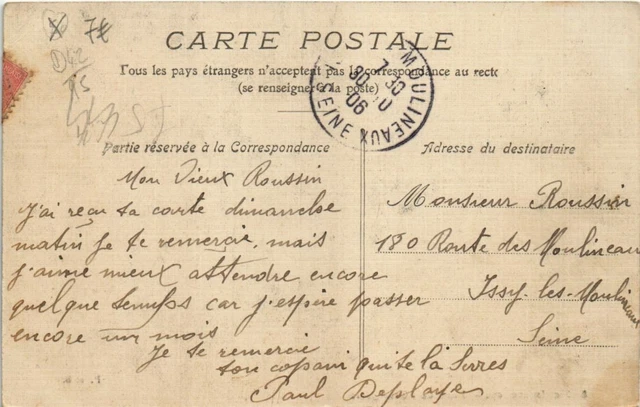 7€
D42
CARTE POSTALE
Tous les pays étrangers n'acceptent pas la correspondance au recto
(se renseigner à la poste)
MOULINEAUX
7 30
30 10
06
SEINE
Partie réservée à la Correspondance
Adresse du destinataire
Mon Vieux Roussin
J'ai reçu ta carte dimanche
matin je te remercie, mais
j'aime mieux attendre encore
quelque temps car j'espire passer
encore un mois
Je te remercie
ton copain qui te la serres
Paul
Monsieur Roussin
180 Route des Moulineau
Issy-les-Moulineaux
Seine